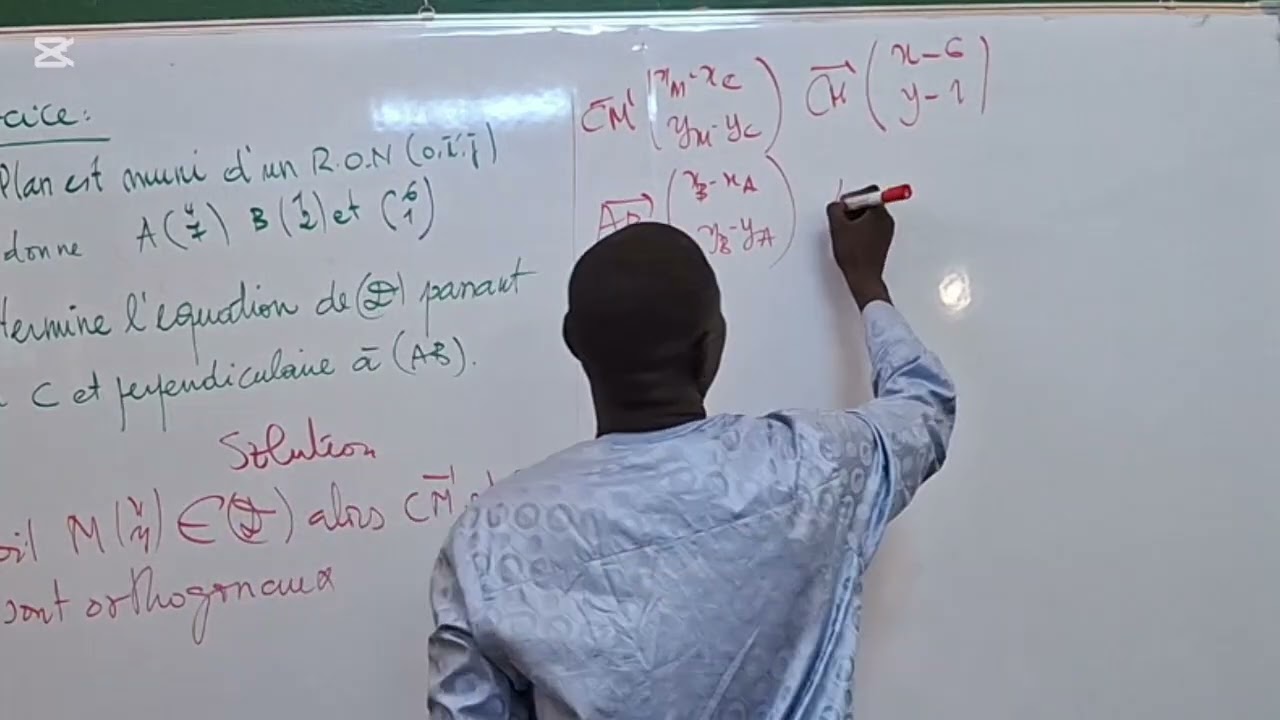 cice:
Plan est muni d'un R.O.N (o,i,j)
donne A(4 7) B(1 2) et (6 1)
termine l'equation de (D) panant
C et perpendiculaire à (AB).
Solution
oit M(x y) ∈ (D) alors CM
sont orthogonaux
CM (xM - xC yM - yC) CM (x - 6 y - 1)
AB (xB - xA yB - yA)